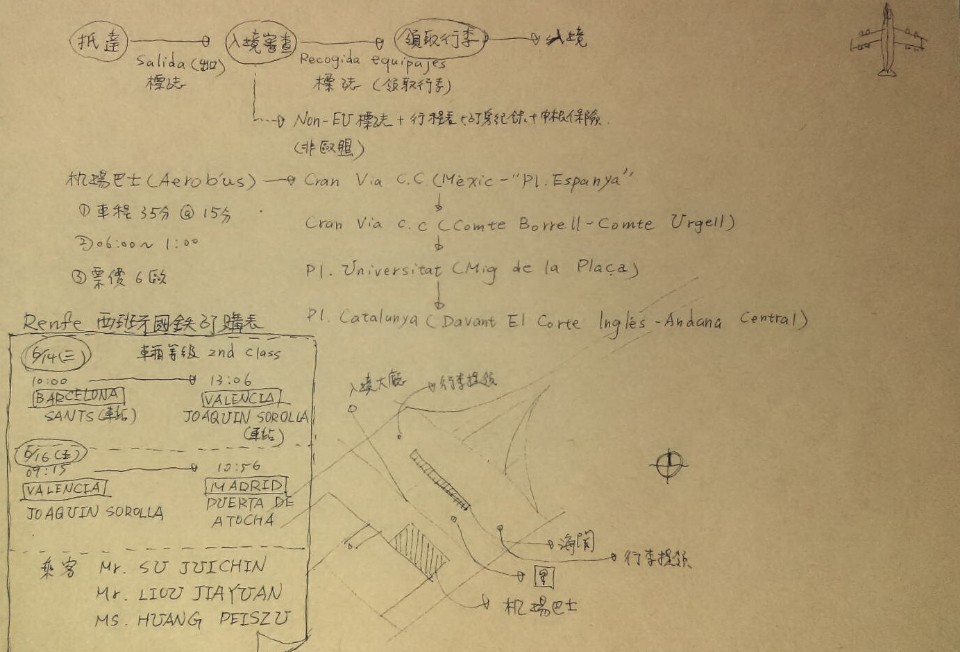 抵達 入境審查 領取行李 入境
Salida (出口)
標誌
Recogida equipajes
標誌 (領取行李)
Non-EU標誌 + 行程表 + 訂房紀錄 + 申根保險
(非歐盟)
机場巴士 (Aerobús) Cran Via C.C. (Mèxic - "Pl. Espanya"
① 車程 35分 @ 15分
Cran Via c.c (Comte Borrell - Comte Urgell)
② 06:00 ~ 1:00
Pl. Universitat (Mig de la Plaça)
③ 票價 6 歐
Pl. Catalunya (Davant El Corte Inglés - Andana Central)
Renfe 西班牙國鉄訂購表
6/14 (三) 車箱等級 2nd class
10:00 13:06
BARCELONA VALENCIA
SANTS (車站) JOAQUIN SOROLLA
(車站)
6/16 (五)
09:15 10:56
VALENCIA MADRID
JOAQUIN SOROLLA PUERTA DE
ATOCHA
乘客 Mr. SU JUICHIN
Mr. LIOU JIAYUAN
MS. HUANG PEISZU
入境大廳 行李提領
海關
行李提領
机場巴士